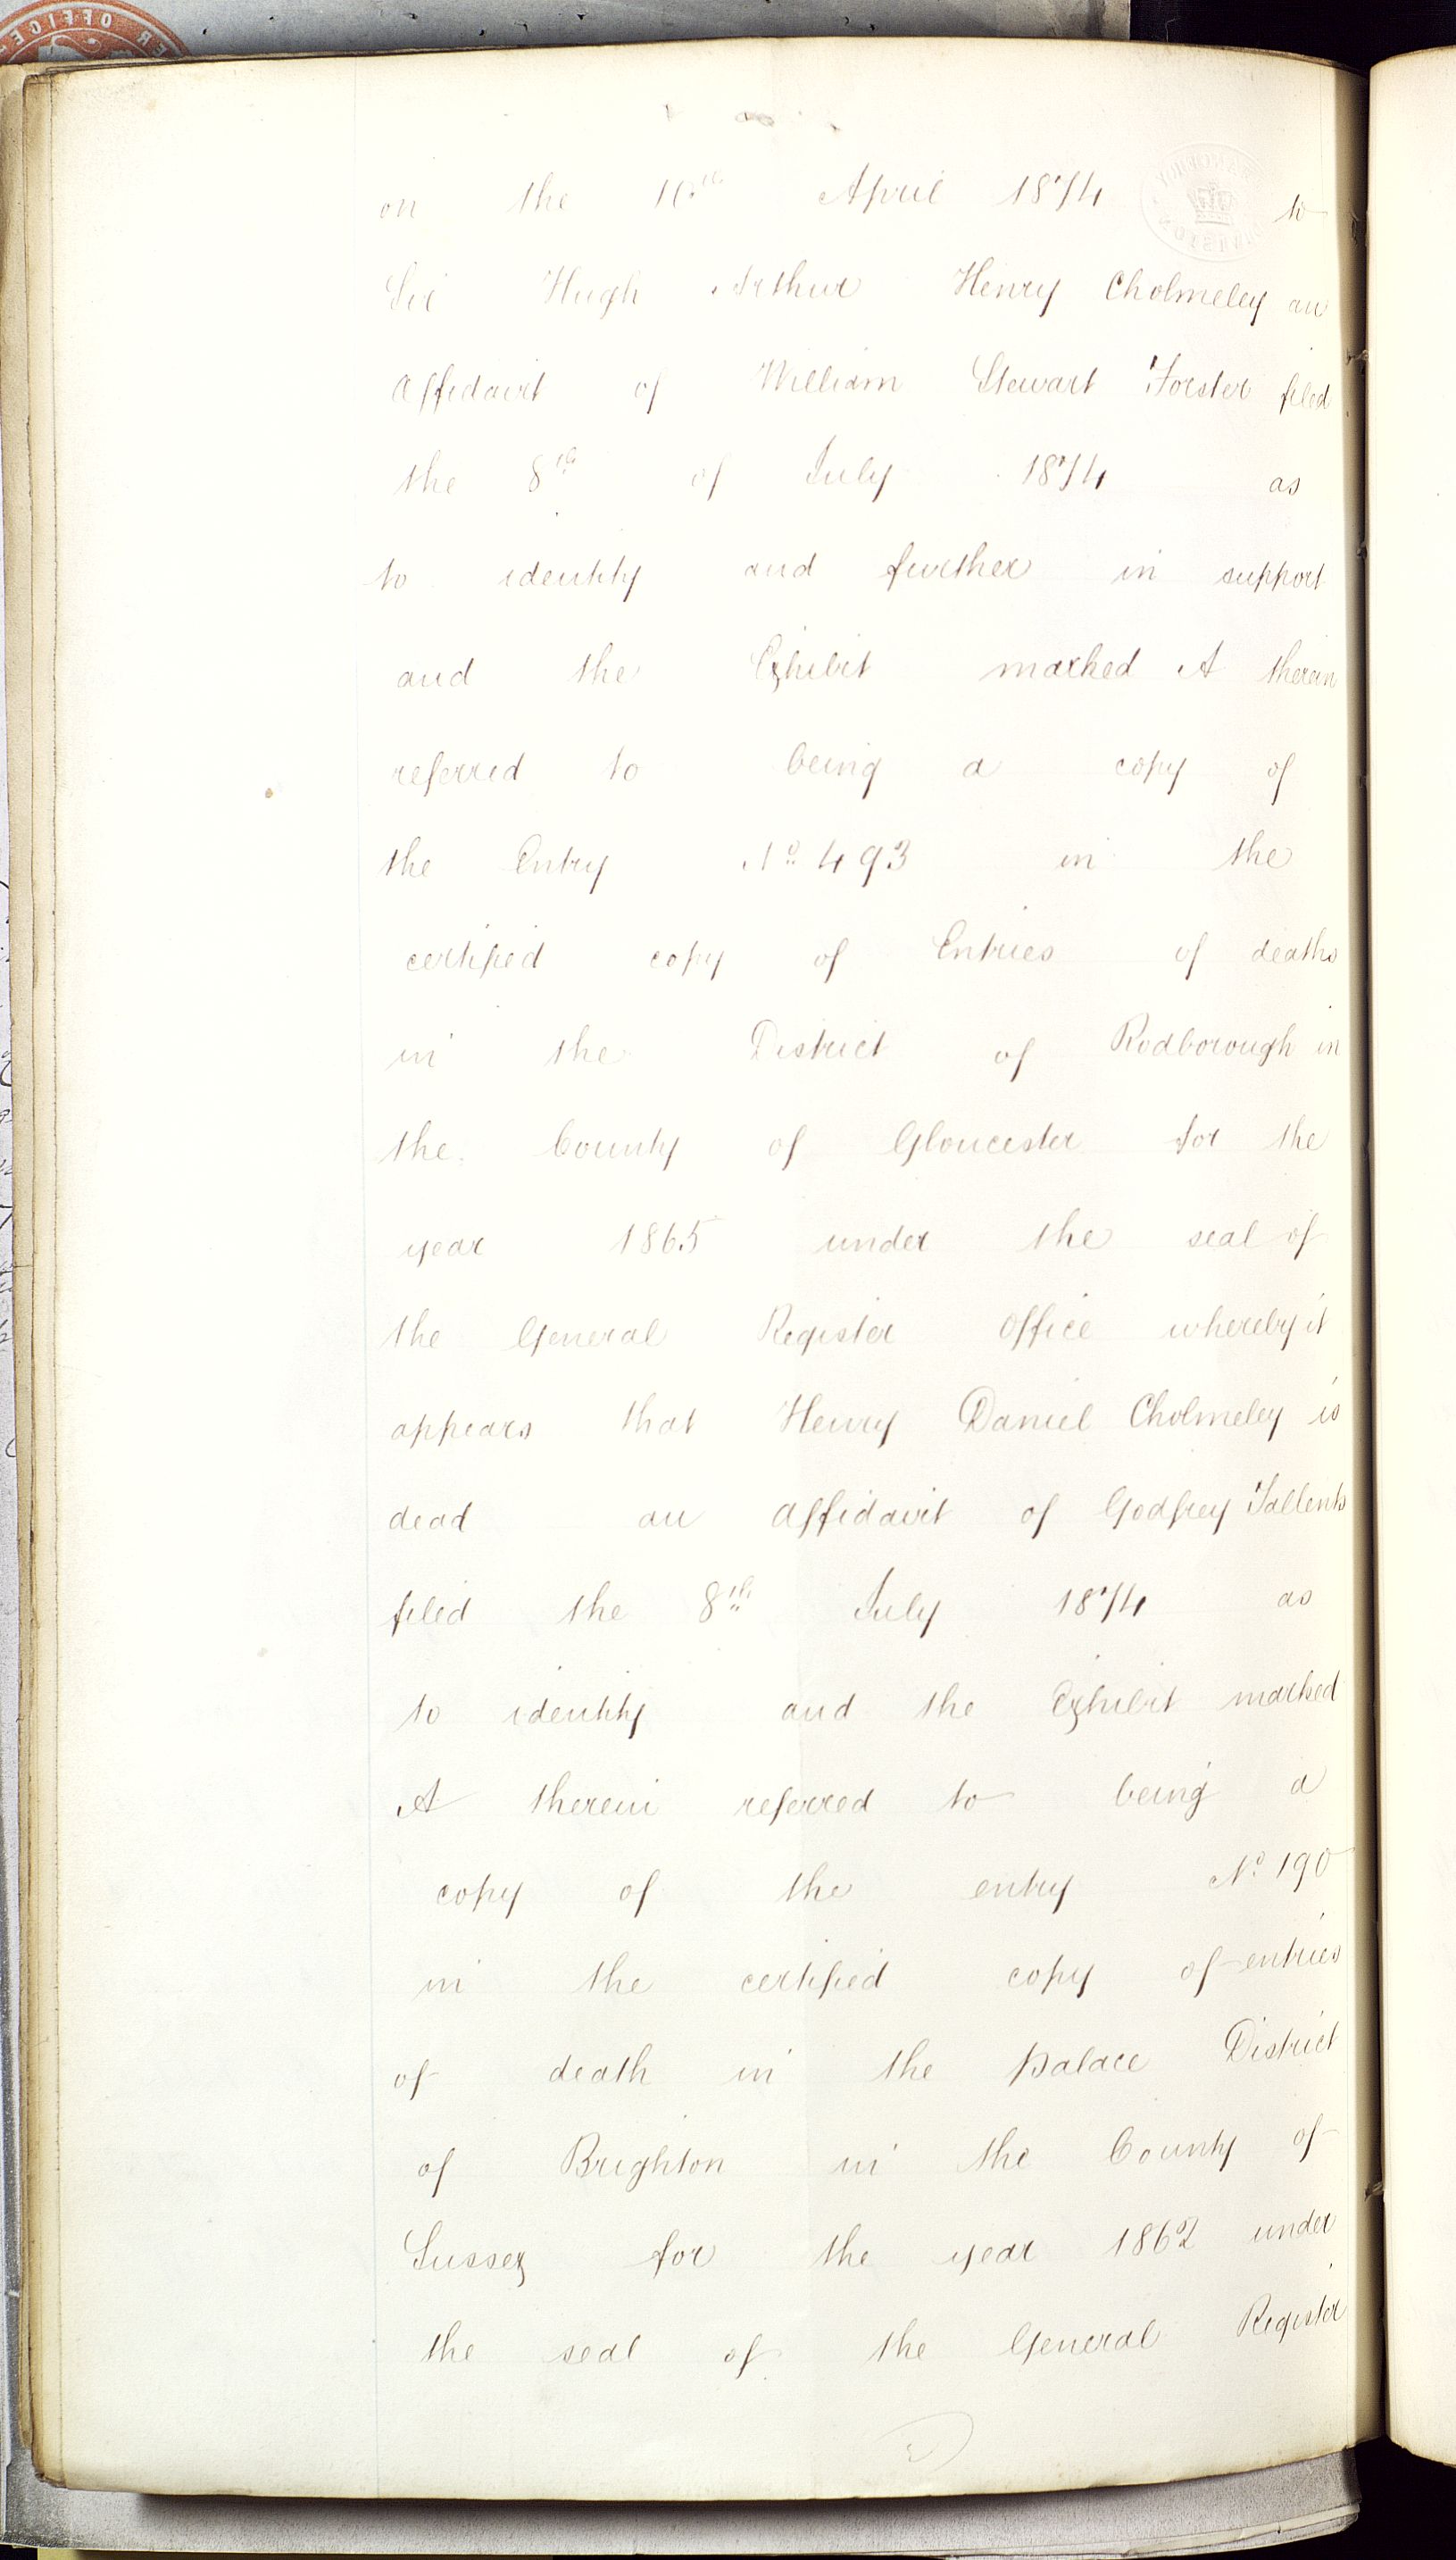 on the 10th April 1874 to
Sir Hugh Arthur Henry Cholmeley an
Affidavit of William Stewart Forster filed
the 8th of July 1874 as
to identity and further in support
and the Exhibit marked A therein
referred to being a copy of
the Entry No 493 in the
certified copy of Entries of deaths
in the District of Rodborough in
the County of Gloucester for the
year 1865 under the seal of
the General Register Office whereby it
appears that Henry Daniel Cholmeley is
dead an Affidavit of Godfrey Tallents
filed the 8th July 1874 as
to identity and the Exhibit marked
A therein referred to being a
copy of the entry No 190
in the certified copy of entries
of death in the Palace District
of Brighton in the County of
Sussex for the year 1862 under
the seal of the General Register